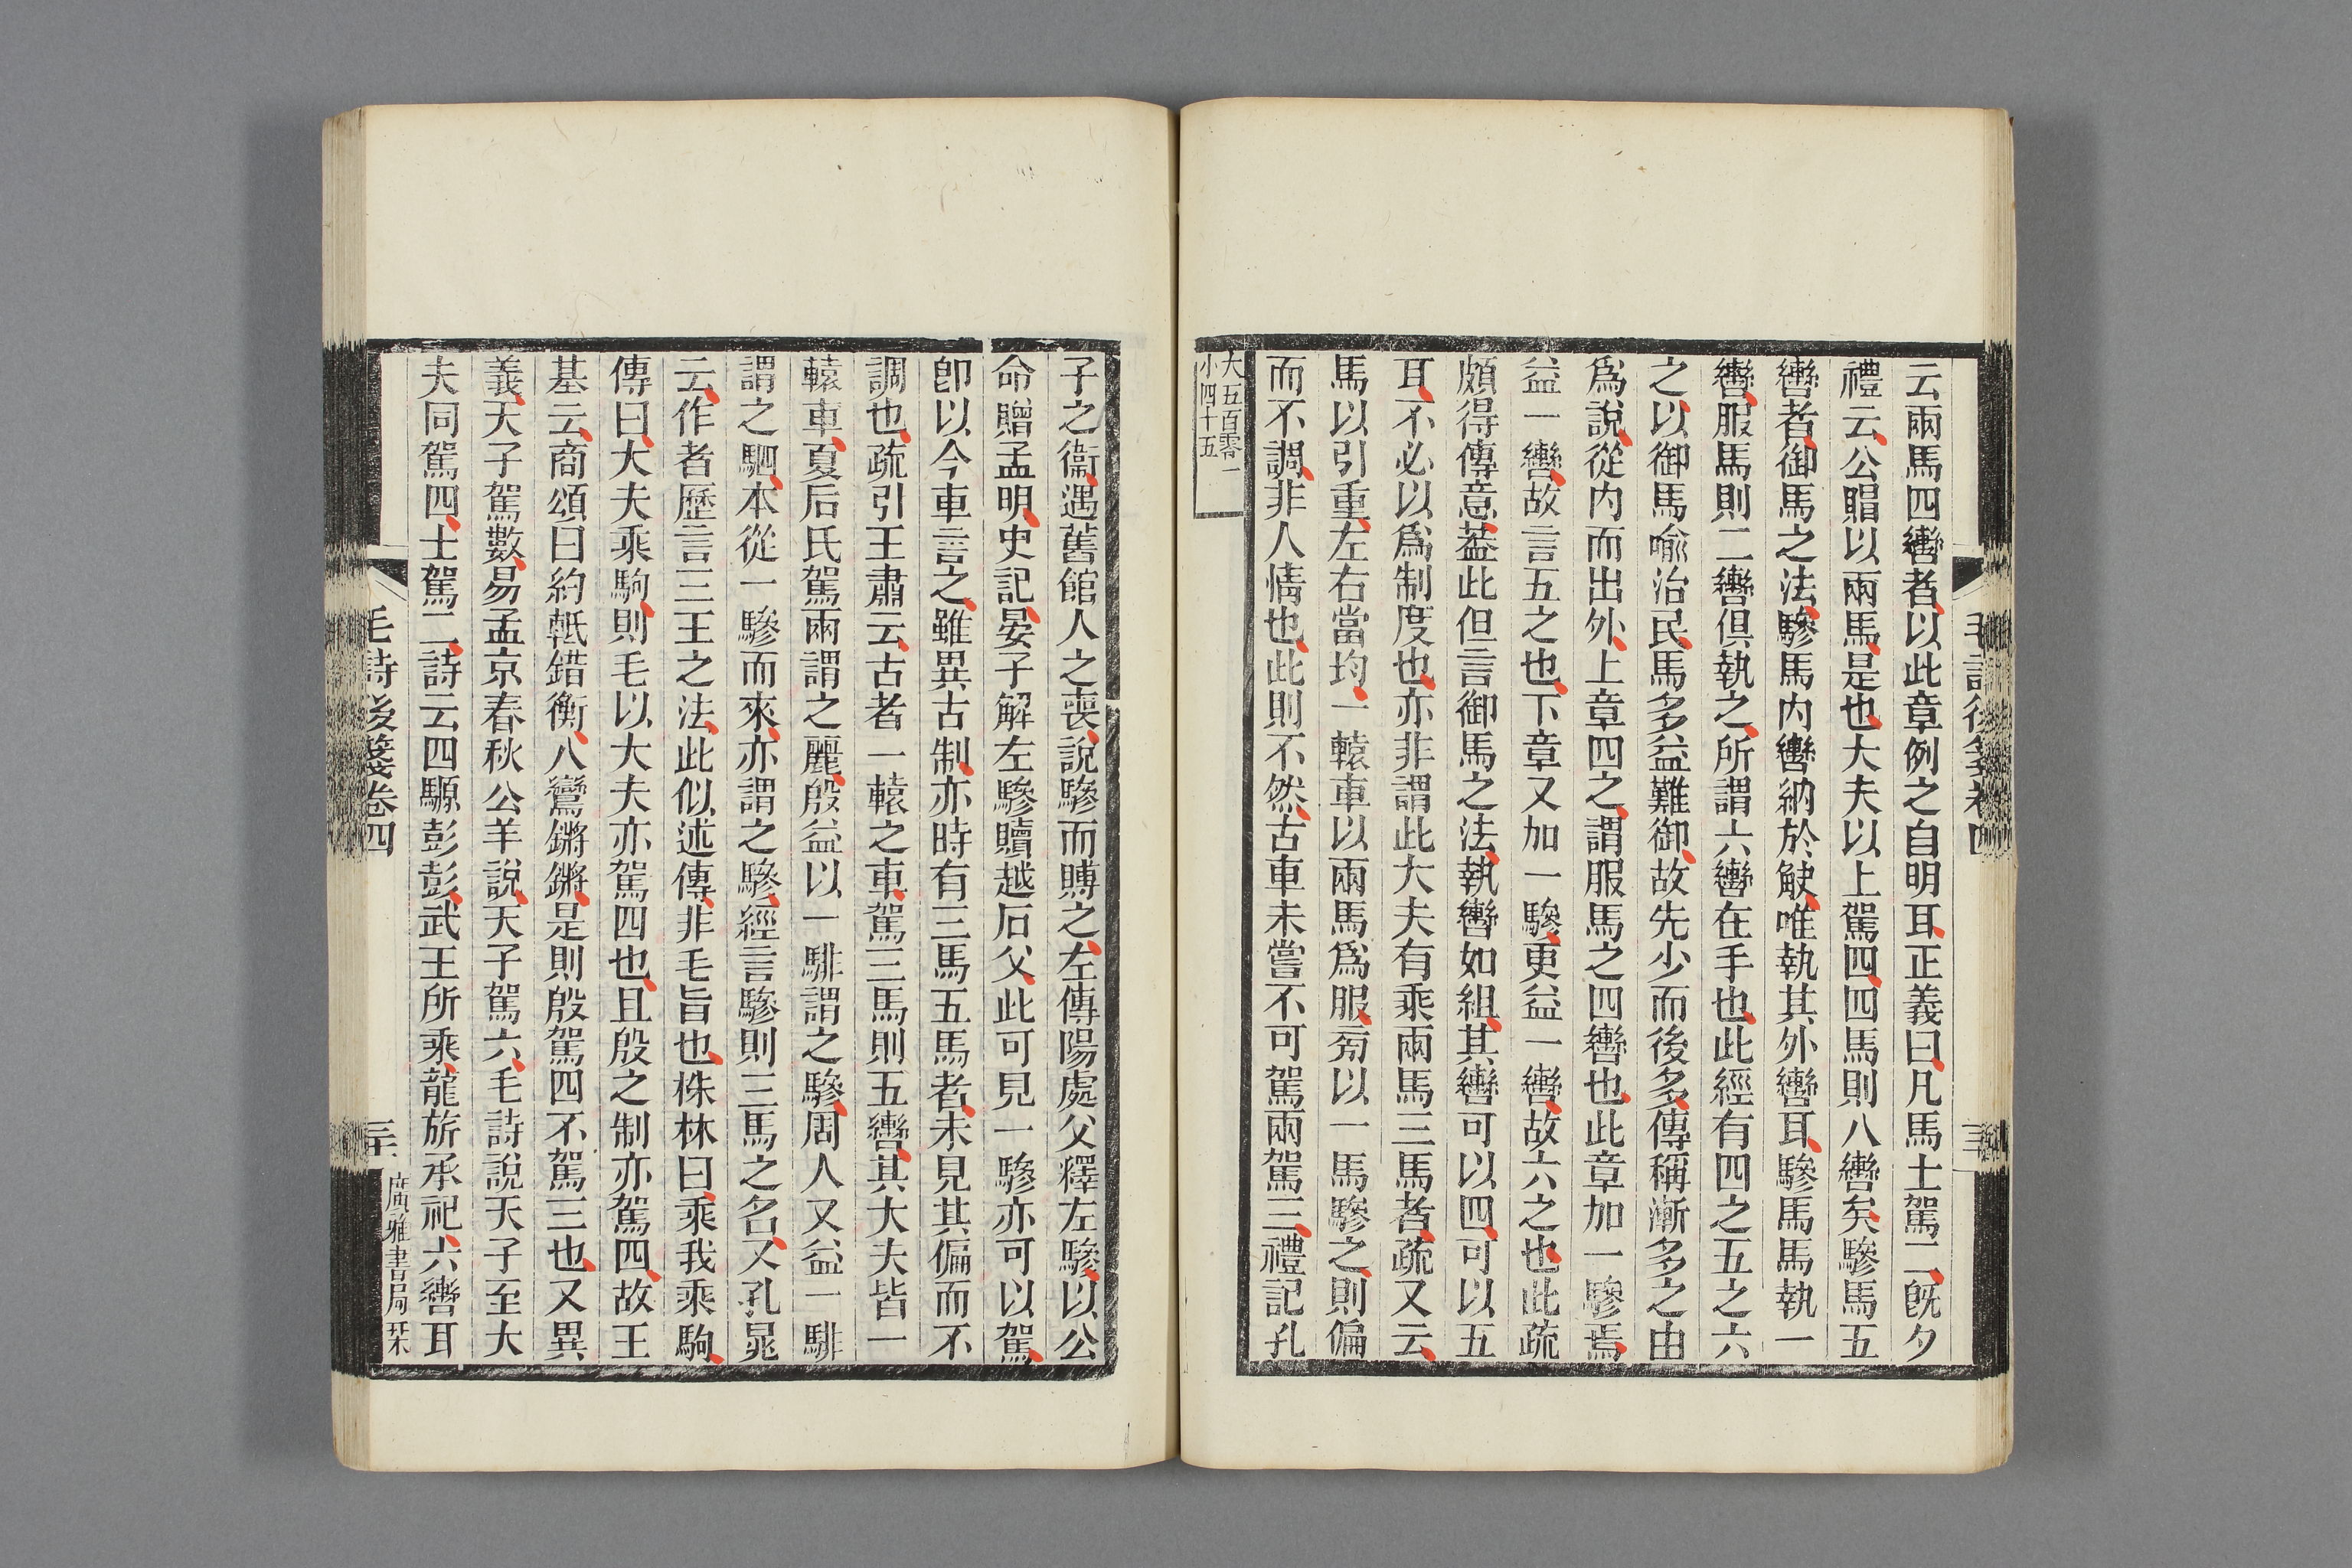 云兩馬四轡者以此章例之自明耳正義曰凡馬士駕二旣夕
禮云公賵以兩馬是也大夫以上駕四四馬則八轡矣驂馬五
轡者御馬之法驂馬內轡納於觖唯執其外轡耳驂馬馬執一
轡服馬則二轡俱執之所謂六轡在手也此經有四之五之六
之以御馬喻治民馬多益難御故先少而後多傳稱漸多之由
爲說從內而出外上章四之謂服馬之四轡也此章加一驂焉
益一轡故言五之也下章又加一驂更益一轡故六之也此疏
頗得傳意葢此但言御馬之法執轡如組其轡可以四可以五
耳不必以爲制度也亦非謂此大夫有乘兩馬三馬者疏又云
馬以引重左右當均一轅車以兩馬爲服㫄以一馬驂之則偏
而不調非人情也此則不然古車未嘗不可駕兩駕三禮記孔
大五百零一
小四十五
子之衞遇舊館人之喪說驂而賻之左傳陽處父釋左驂以公
命贈孟明史記晏子解左驂贖越石父此可見一驂亦可以駕
卽以今車言之雖異古制亦時有三馬五馬者未見其偏而不
調也疏引王肅云古者一轅之車駕三馬則五轡其大夫皆一
轅車夏后氏駕兩謂之麗殷益以一騑謂之驂周人又益一騑
謂之駟本從一驂而來亦謂之驂經言驂則三馬之名又孔晁
云作者歷言三王之法此似述傳非毛旨也株林曰乘我乘駒
傳曰大夫乘駒則毛以大夫亦駕四也且殷之制亦駕四故王
基云商頌曰約軝錯衡八鸞鏘鏘是則殷駕四不駕三也又異
義天子駕數易孟京春秋公羊說天子駕六毛詩說天子至大
夫同駕四士駕二詩云四騵彭彭武王所乘龍旂承祀六轡耳
毛詩後箋卷四
廣雅書局栞